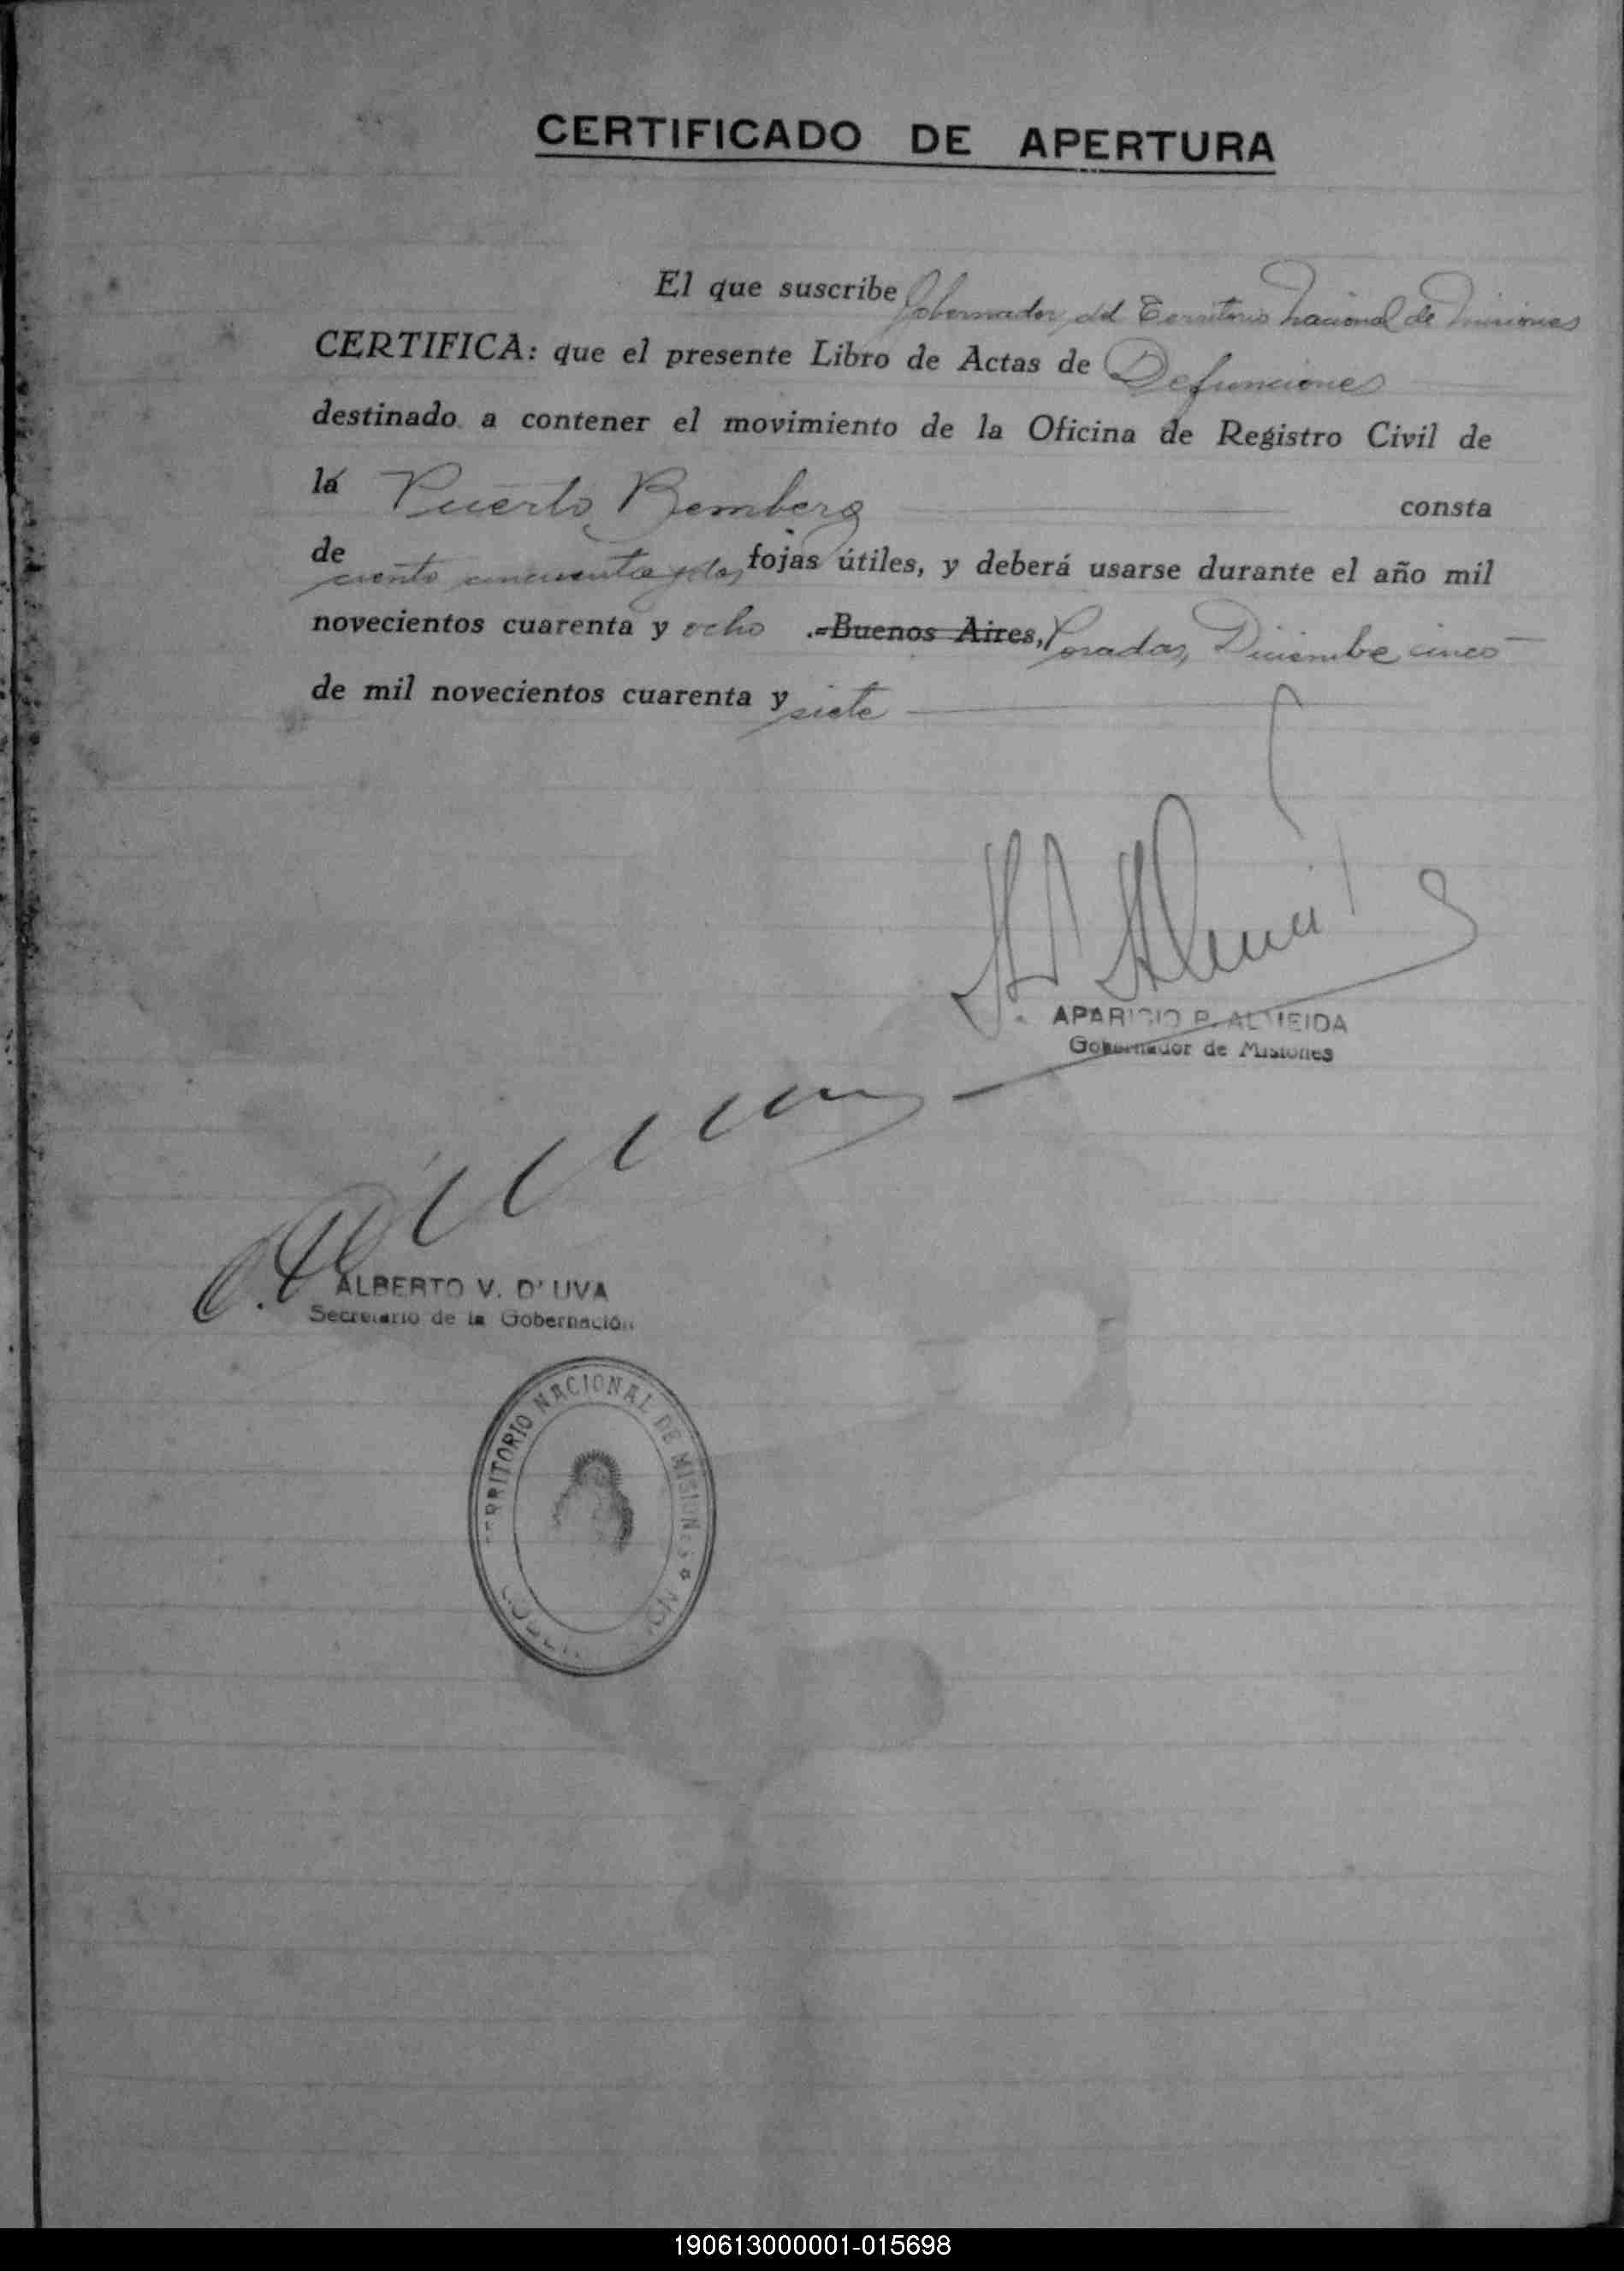 CERTIFICADO DE APERTURA
El que suscribe Gobernador del Territorio Nacional de Misiones
CERTIFICA: que el presente Libro de Actas de Defunciones
destinado a contener el movimiento de la Oficina de Registro Civil de
la Puerto Bemberg consta
de ciento cincuenta y dos fojas útiles, y deberá usarse durante el año mil
novecientos cuarenta y ocho .-Buenos Aires, Posadas, Diciembre cinco
de mil novecientos cuarenta y siete
APARICIO P. ALMEIDA
Gobernador de Misiones
ALBERTO V. D'UVA
Secretario de la Gobernación
TERRITORIO NACIONAL DE MISIONES
190613000001-015698